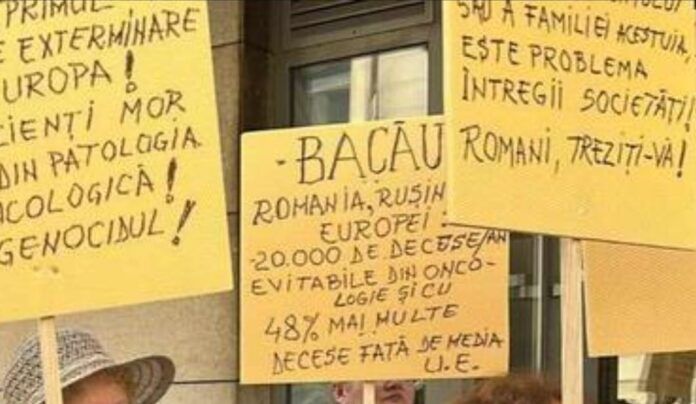 PRIMUL
E EXTERMINARE
UROPA!
IENȚI MOR
DIN PATOLOGIA
COLOGICĂ!
GENOCIDUL!
- BACĂU
ROMANIA, RUȘIN
EUROPEI!
-20.000 DE DECESE/AN
EVITABILE DIN ONCO-
LOGIE ȘI CU
48% MAI MULTE
DECESE FAȚĂ DE MEDIA
U.E.
SAU A FAMILIEI ACESTUIA,
ESTE PROBLEMA
ÎNTREGII SOCIETĂȚI!
ROMANI, TREZIȚI-VĂ!